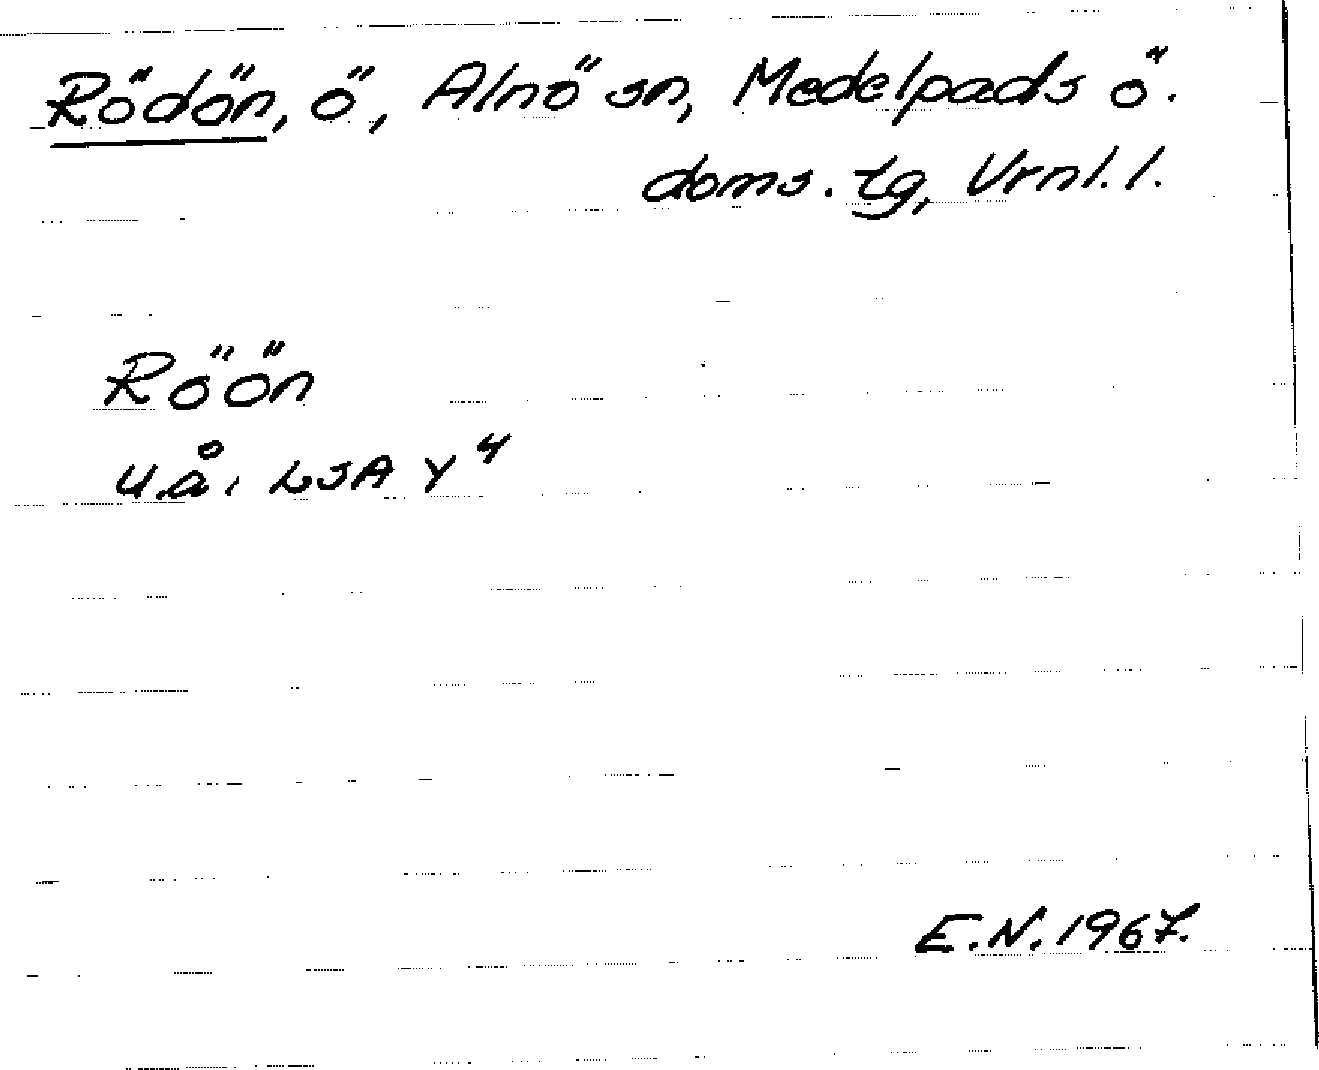 Rödön, ö, Alnö sn, Medelpads ö.
doms. tg, Vrnl. l.
Röön
u.å. LSA Y4
E.N. 1967.